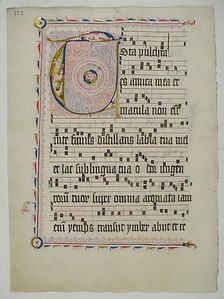 Tota pulchra
es amica mea et
macula non est
in te favus distillans labia tua mel
et lac sub lingua tua o dor ungen
torum tuor super omnia aromata iam
enim yemps transiit ymber abiit et re